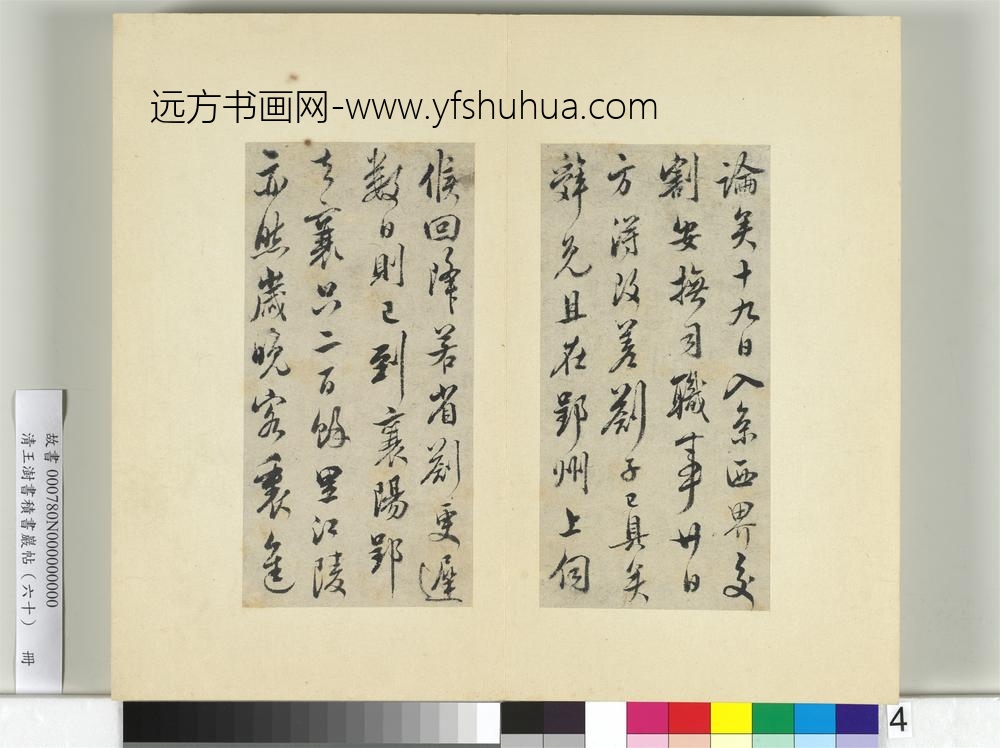 远方书画网-www.yfshuhua.com
論矣十九日入京西界交
割安撫司職事廿日
方得改差劄子已具奏
辭免且在郢州上伺
候回降若省劄更遲
數日則已到襄陽郢
去襄只二百餘里江陵
亦然歲晚客裏進
故書 000780N000000000
清王澍書積書巖帖（六十） 冊
4